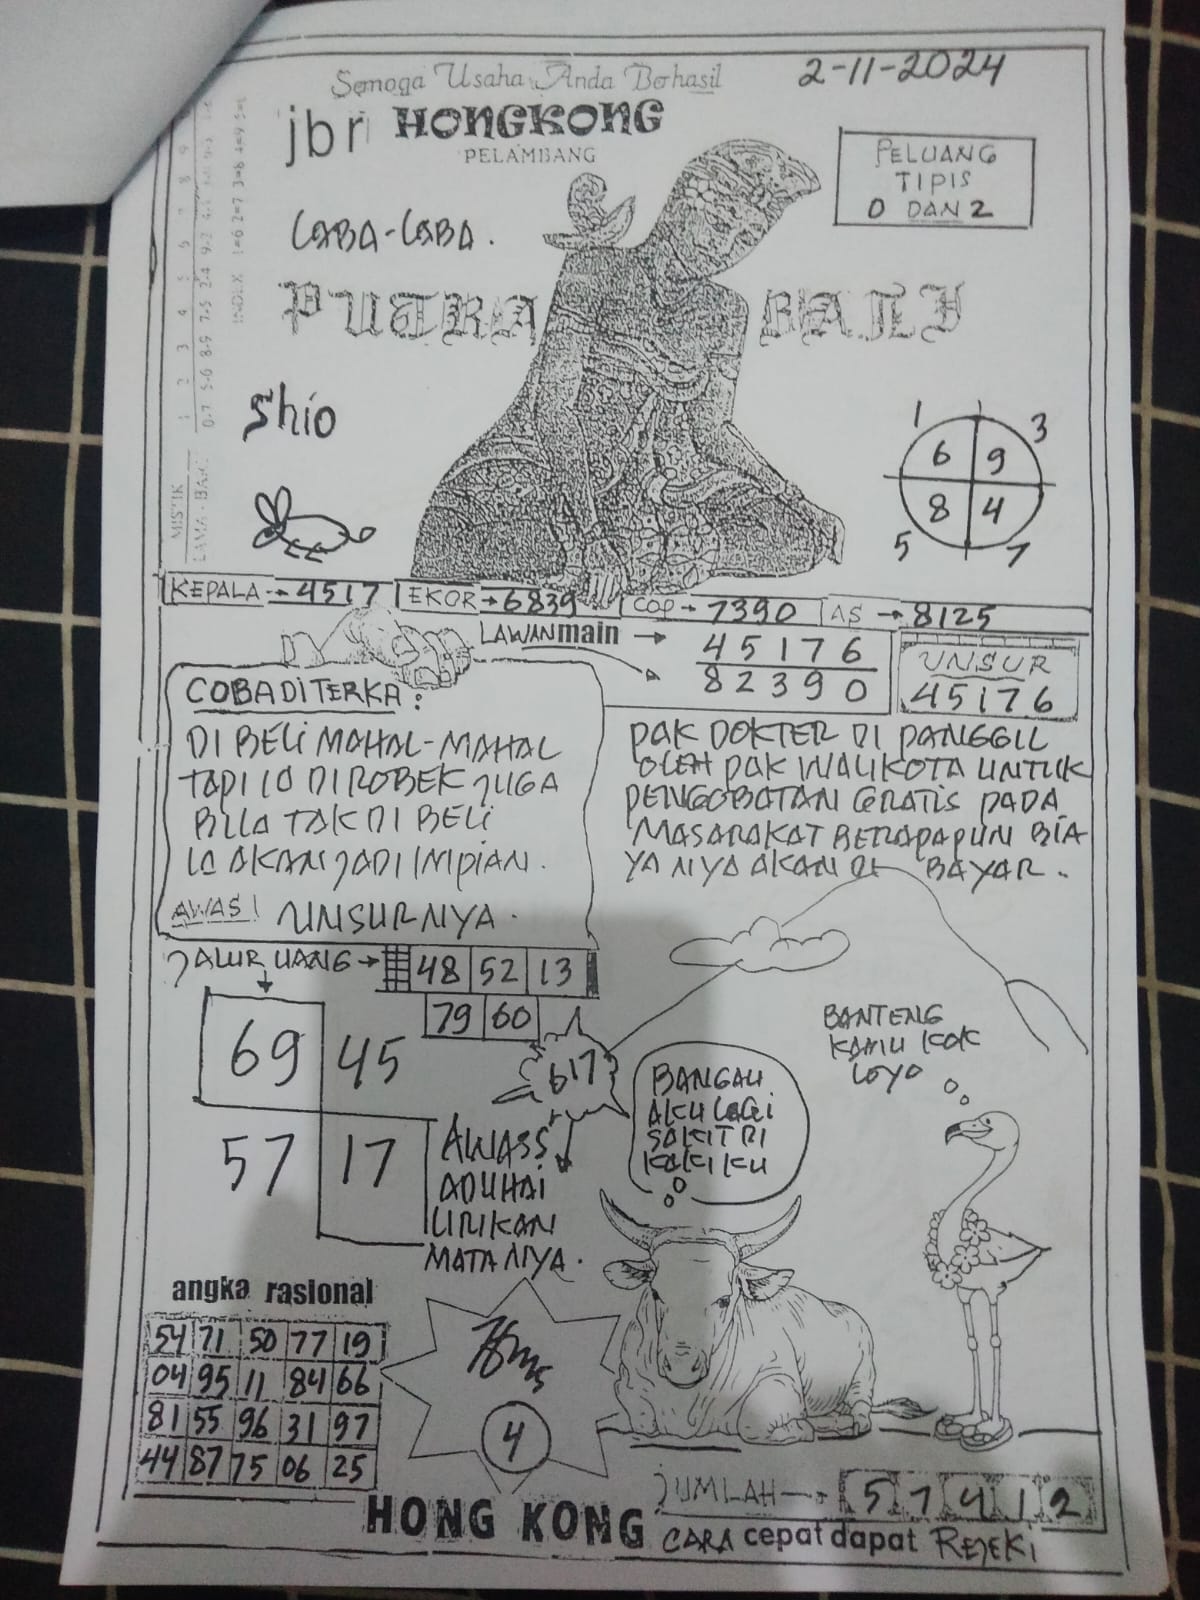 2-11-2024
Semoga Usaha Anda Berhasil
jbr HONGKONG
PELAMBANG
PELUANG
TIPIS
0 DAN 2
LABA-LABA.
PUTRA BALI
Shio
MISTIK
LAMA - BARU
INDEX
1 3
6 9
8 4
5 7
KEPALA → 4517
EKOR → 6839
COP → 7390
AS → 8125
LAWAN main → 45176
82390
UNSUR
45176
COBA DITERKA:
DI BELI MAHAL-MAHAL
TAPI IA DI ROBEK JUGA
BILA TAK DI BELI
IA AKAN JADI IMPIAN.
AWAS! UNSURNYA.
PAK DOKTER DI PANGGIL
OLEH PAK WALIKOTA UNTUK
PENGOBATAN GRATIS PADA
MASARAKAT BERAPAPUN BIA
YA NYA AKAN DI BAYAR.
JALUR UANG → 48 52 13
79 60
69 45
57 17
617
AWASS
ADUHAI
LIRIKAN
MATA NYA.
BANGAU
AKU LAGI
SAKIT DI
KAKI KU
BANTENG
KAMU KOK
LOYO
angka rasional
54 71 50 77 19
04 95 11 84 66
81 55 96 31 97
44 87 75 06 25
4
JUMLAH → 5 7 4 1 2
HONG KONG
CARA cepat dapat REJEKI